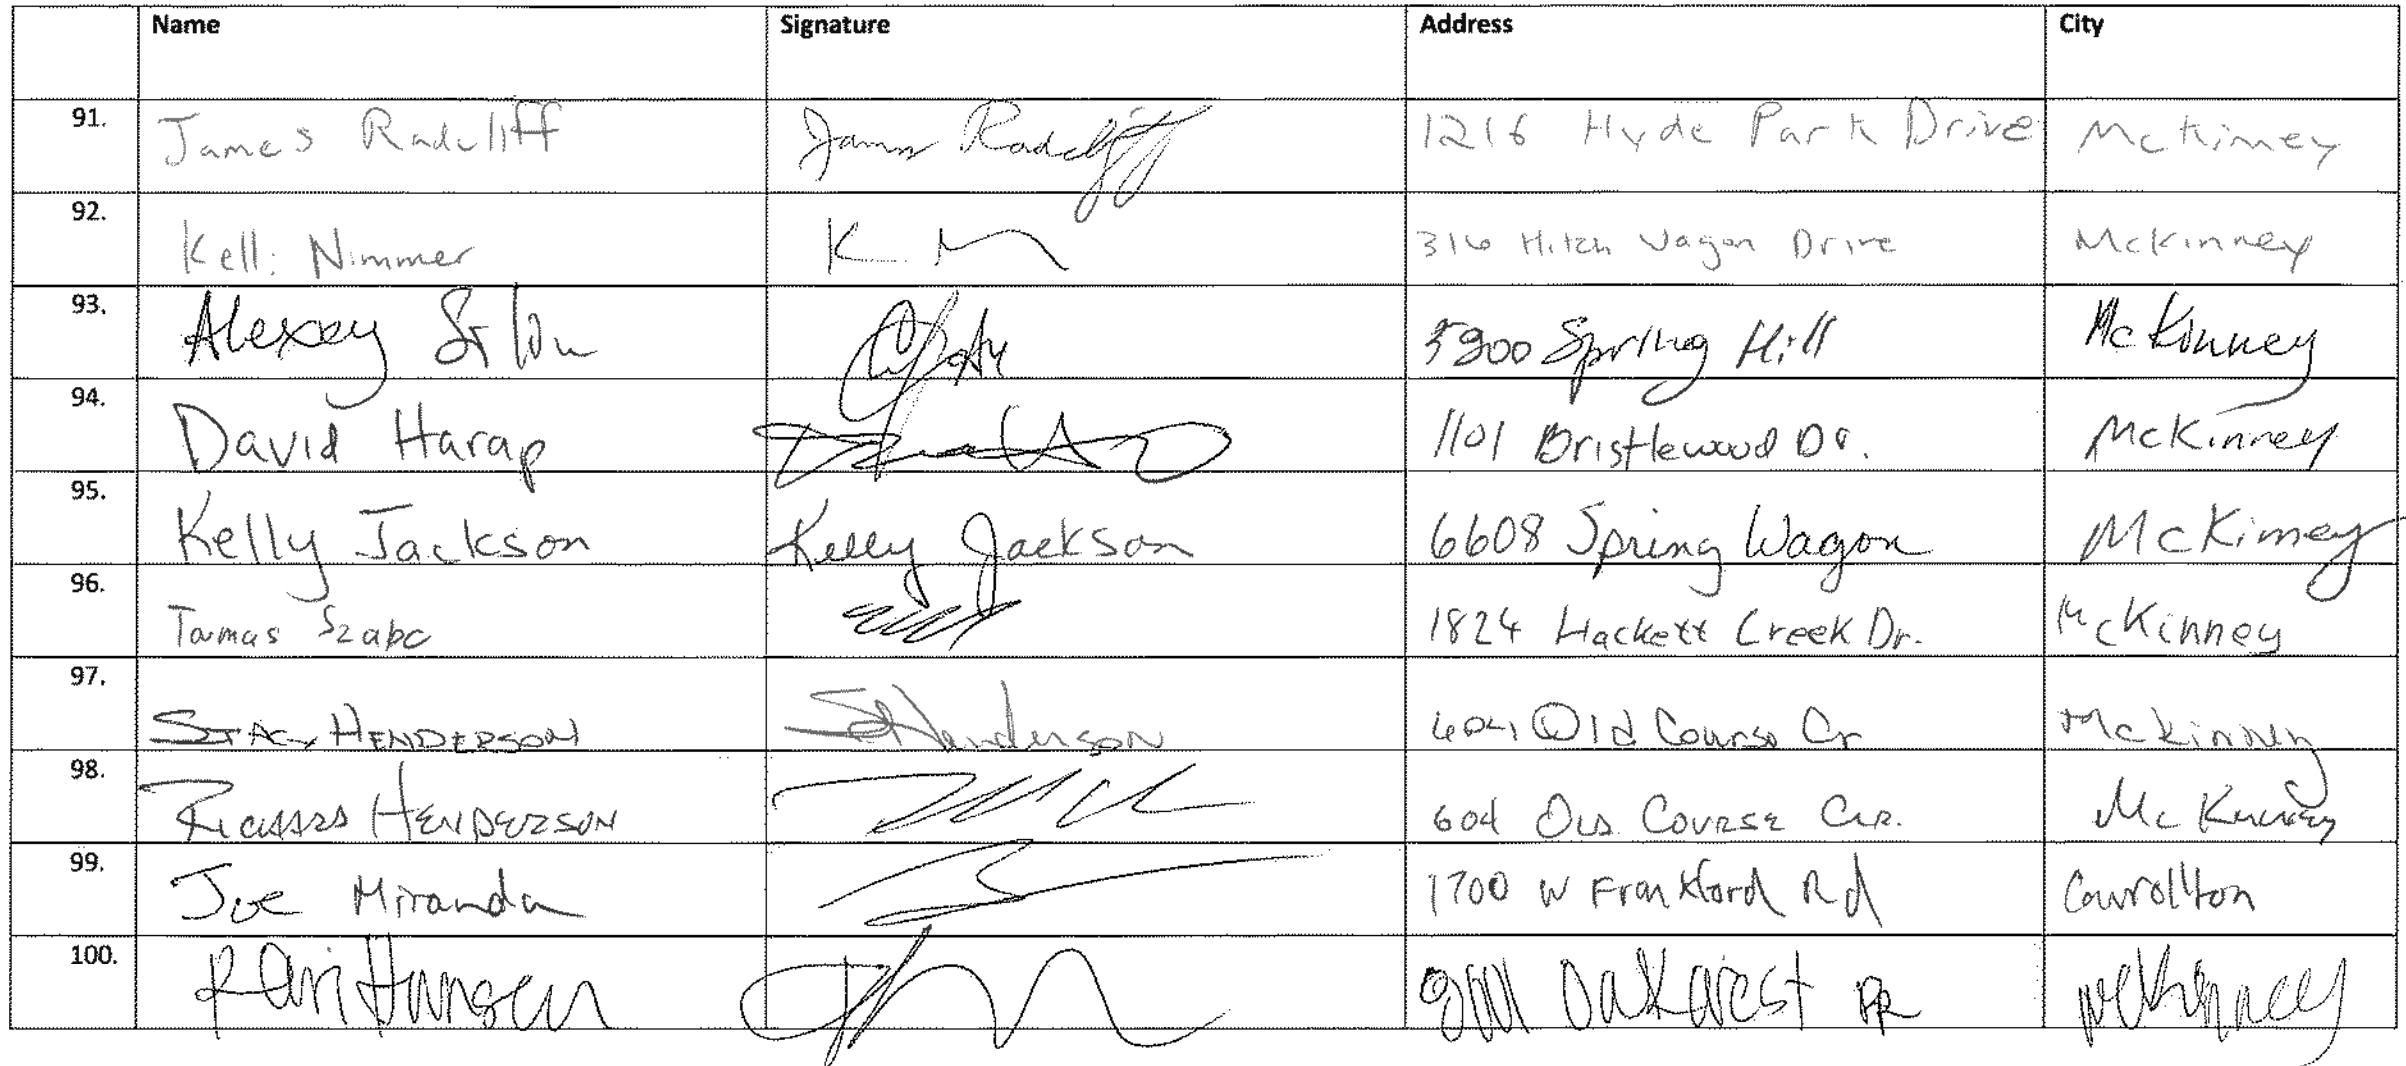 Name Signature Address City
91. James Radcliff James Radcliff 1216 Hyde Park Drive McKinney
92. Kelli Nimmer K N 316 Hitch Wagon Drive McKinney
93. Alexey Spring Hill McKinney
94. David Harap 1101 Bristlewood Dr. McKinney
95. Kelly Jackson Kelly Jackson 6608 Spring Wagon McKinney
96. Tamas Szabo 1824 Hackett Creek Dr. McKinney
97. STACY HENDERSON S Henderson 604 Old Course Cr McKinney
98. RICHARD HENDERSON 604 OLD COURSE CIR. McKinney
99. Joe Miranda 1700 W Frankford Rd Carrollton
100. Hansen Oakcrest DR McKinney